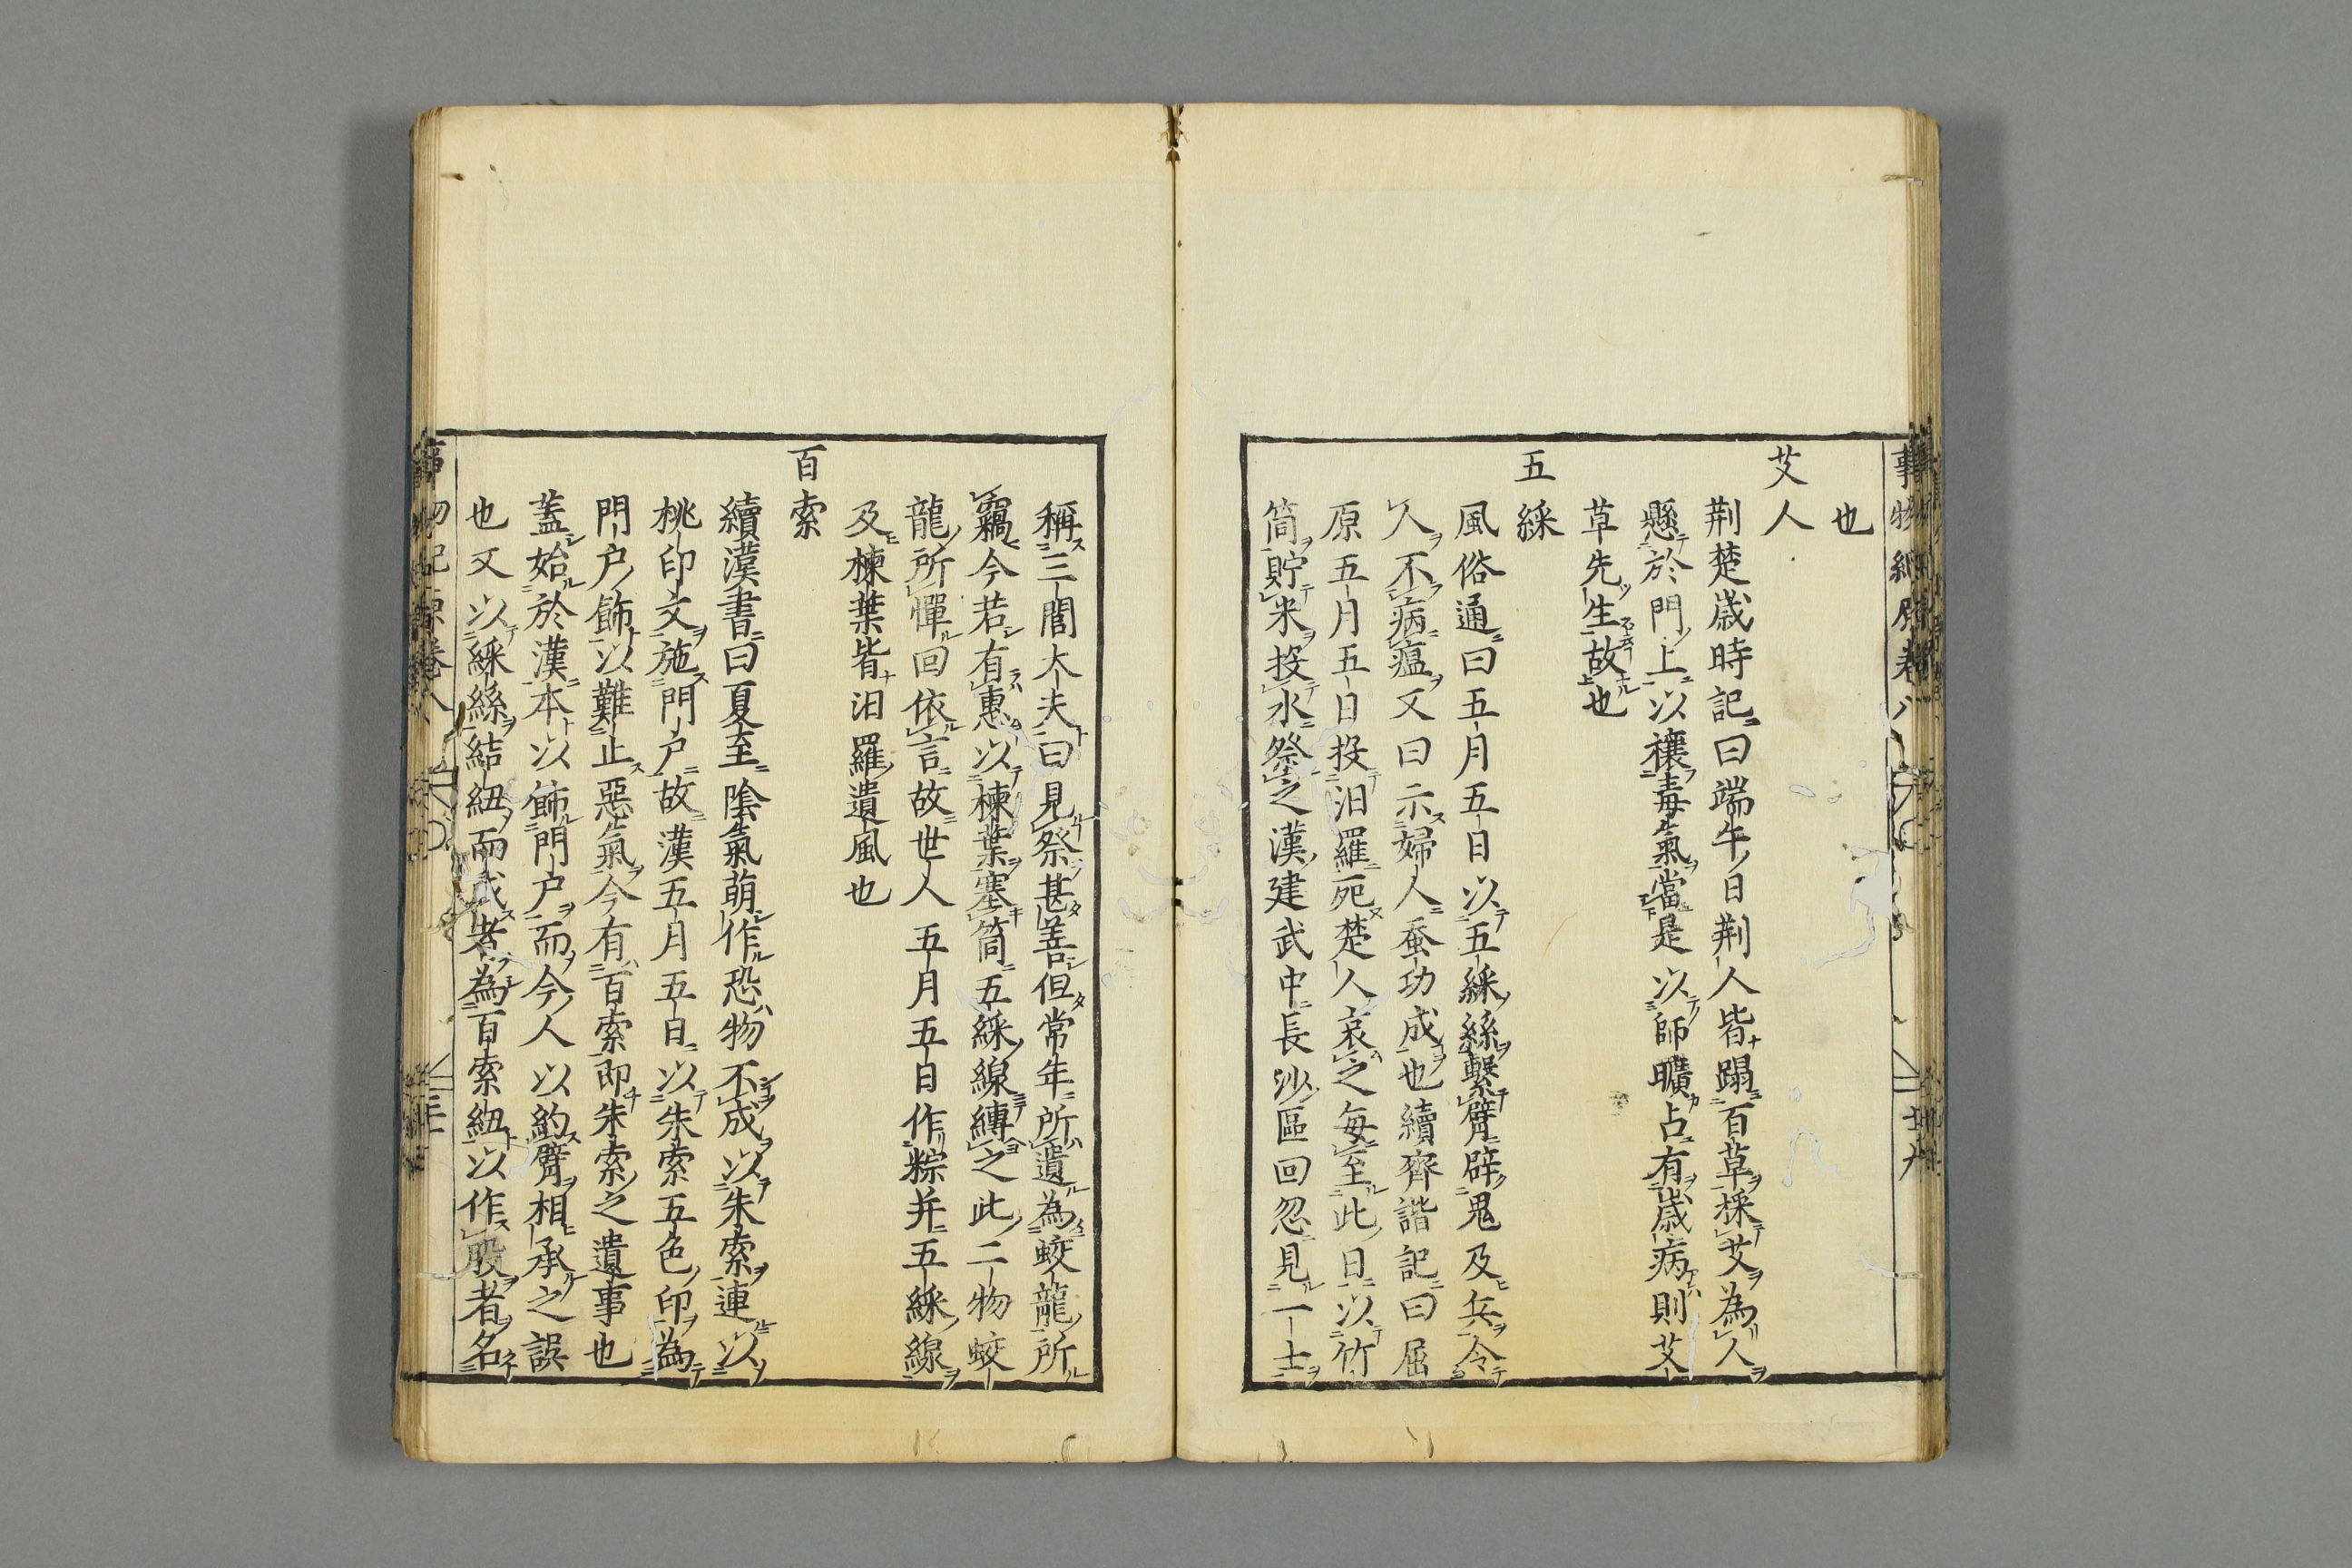 也
艾人
荆楚歲時記曰端午日荆人皆蹋百草採艾為人
懸於門上以禳毒氣當是以師曠占有歲病則艾
草先生故也
五綵
風俗通曰五月五日以五綵絲繫臂辟鬼及兵令
人不病瘟又曰示婦人蚕功成也續齊諧記曰屈
原五月五日投汨羅死楚人哀之每至此日以竹
筒貯米投水祭之漢建武中長沙區回忽見一士
稱三閭大夫曰見祭甚善但常年所遺為蛟龍所
竊今若有惠以楝葉塞筒五綵線縳之此二物蛟
龍所憚回依言故世人五月五日作粽并五綵線
及楝葉皆汨羅遺風也
百索
續漢書曰夏至陰氣萌作恐物不成以朱索連以
桃印文施門户故漢五月五日以朱索五色印為
門户飾以難止惡氣今有百索即朱索之遺事也
蓋始於漢本以飾門户而今人以約臂相承之誤
也又以綵絲結紐而成者為百索紐以作股者名